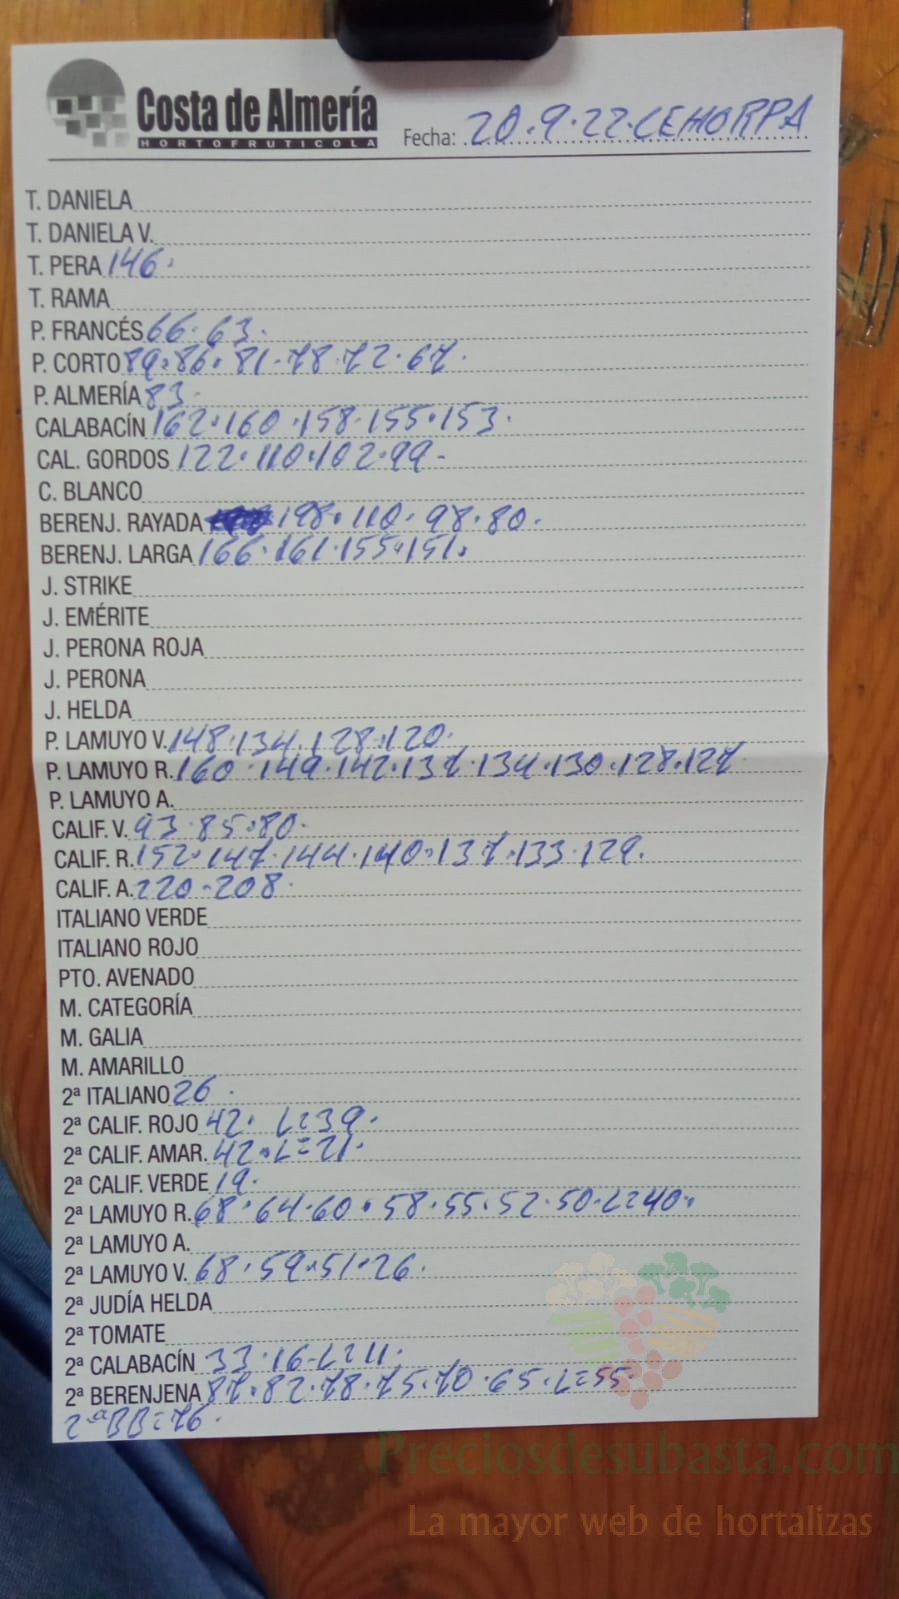 Costa de Almería
HORTOFRUTICOLA
Fecha: 20.9.22.CEHORPA
T. DANIELA
T. DANIELA V.
T. PERA 146.
T. RAMA
P. FRANCÉS 66.63.
P. CORTO 89.86.81.78.72.67.
P. ALMERÍA 83.
CALABACÍN 162.160.158.155.153.
CAL. GORDOS 122.110.102.99-
C. BLANCO
BERENJ. RAYADA 198.110.98.80.
BERENJ. LARGA 166.161.155.151.
J. STRIKE
J. EMÉRITE
J. PERONA ROJA
J. PERONA
J. HELDA
P. LAMUYO V. 148.134.128.120.
P. LAMUYO R. 160.149.142.137.134.130.128.127
P. LAMUYO A.
CALIF. V. 93.85.80.
CALIF. R. 152.147.144.140.137.133.129.
CALIF. A. 220-208.
ITALIANO VERDE
ITALIANO ROJO
PTO. AVENADO
M. CATEGORÍA
M. GALIA
M. AMARILLO
2ª ITALIANO 26.
2ª CALIF. ROJO 42. L=39.
2ª CALIF. AMAR. 42.L=21.
2ª CALIF. VERDE 19.
2ª LAMUYO R. 68.64.60.58.55.52.50.L=40.
2ª LAMUYO A.
2ª LAMUYO V. 68.59.51.26.
2ª JUDÍA HELDA
2ª TOMATE
2ª CALABACÍN 33.16-L=11.
2ª BERENJENA 87.82.78.75.70.65.L=55.
2ªBB=76.
Preciosdesubasta.com
La mayor web de hortalizas